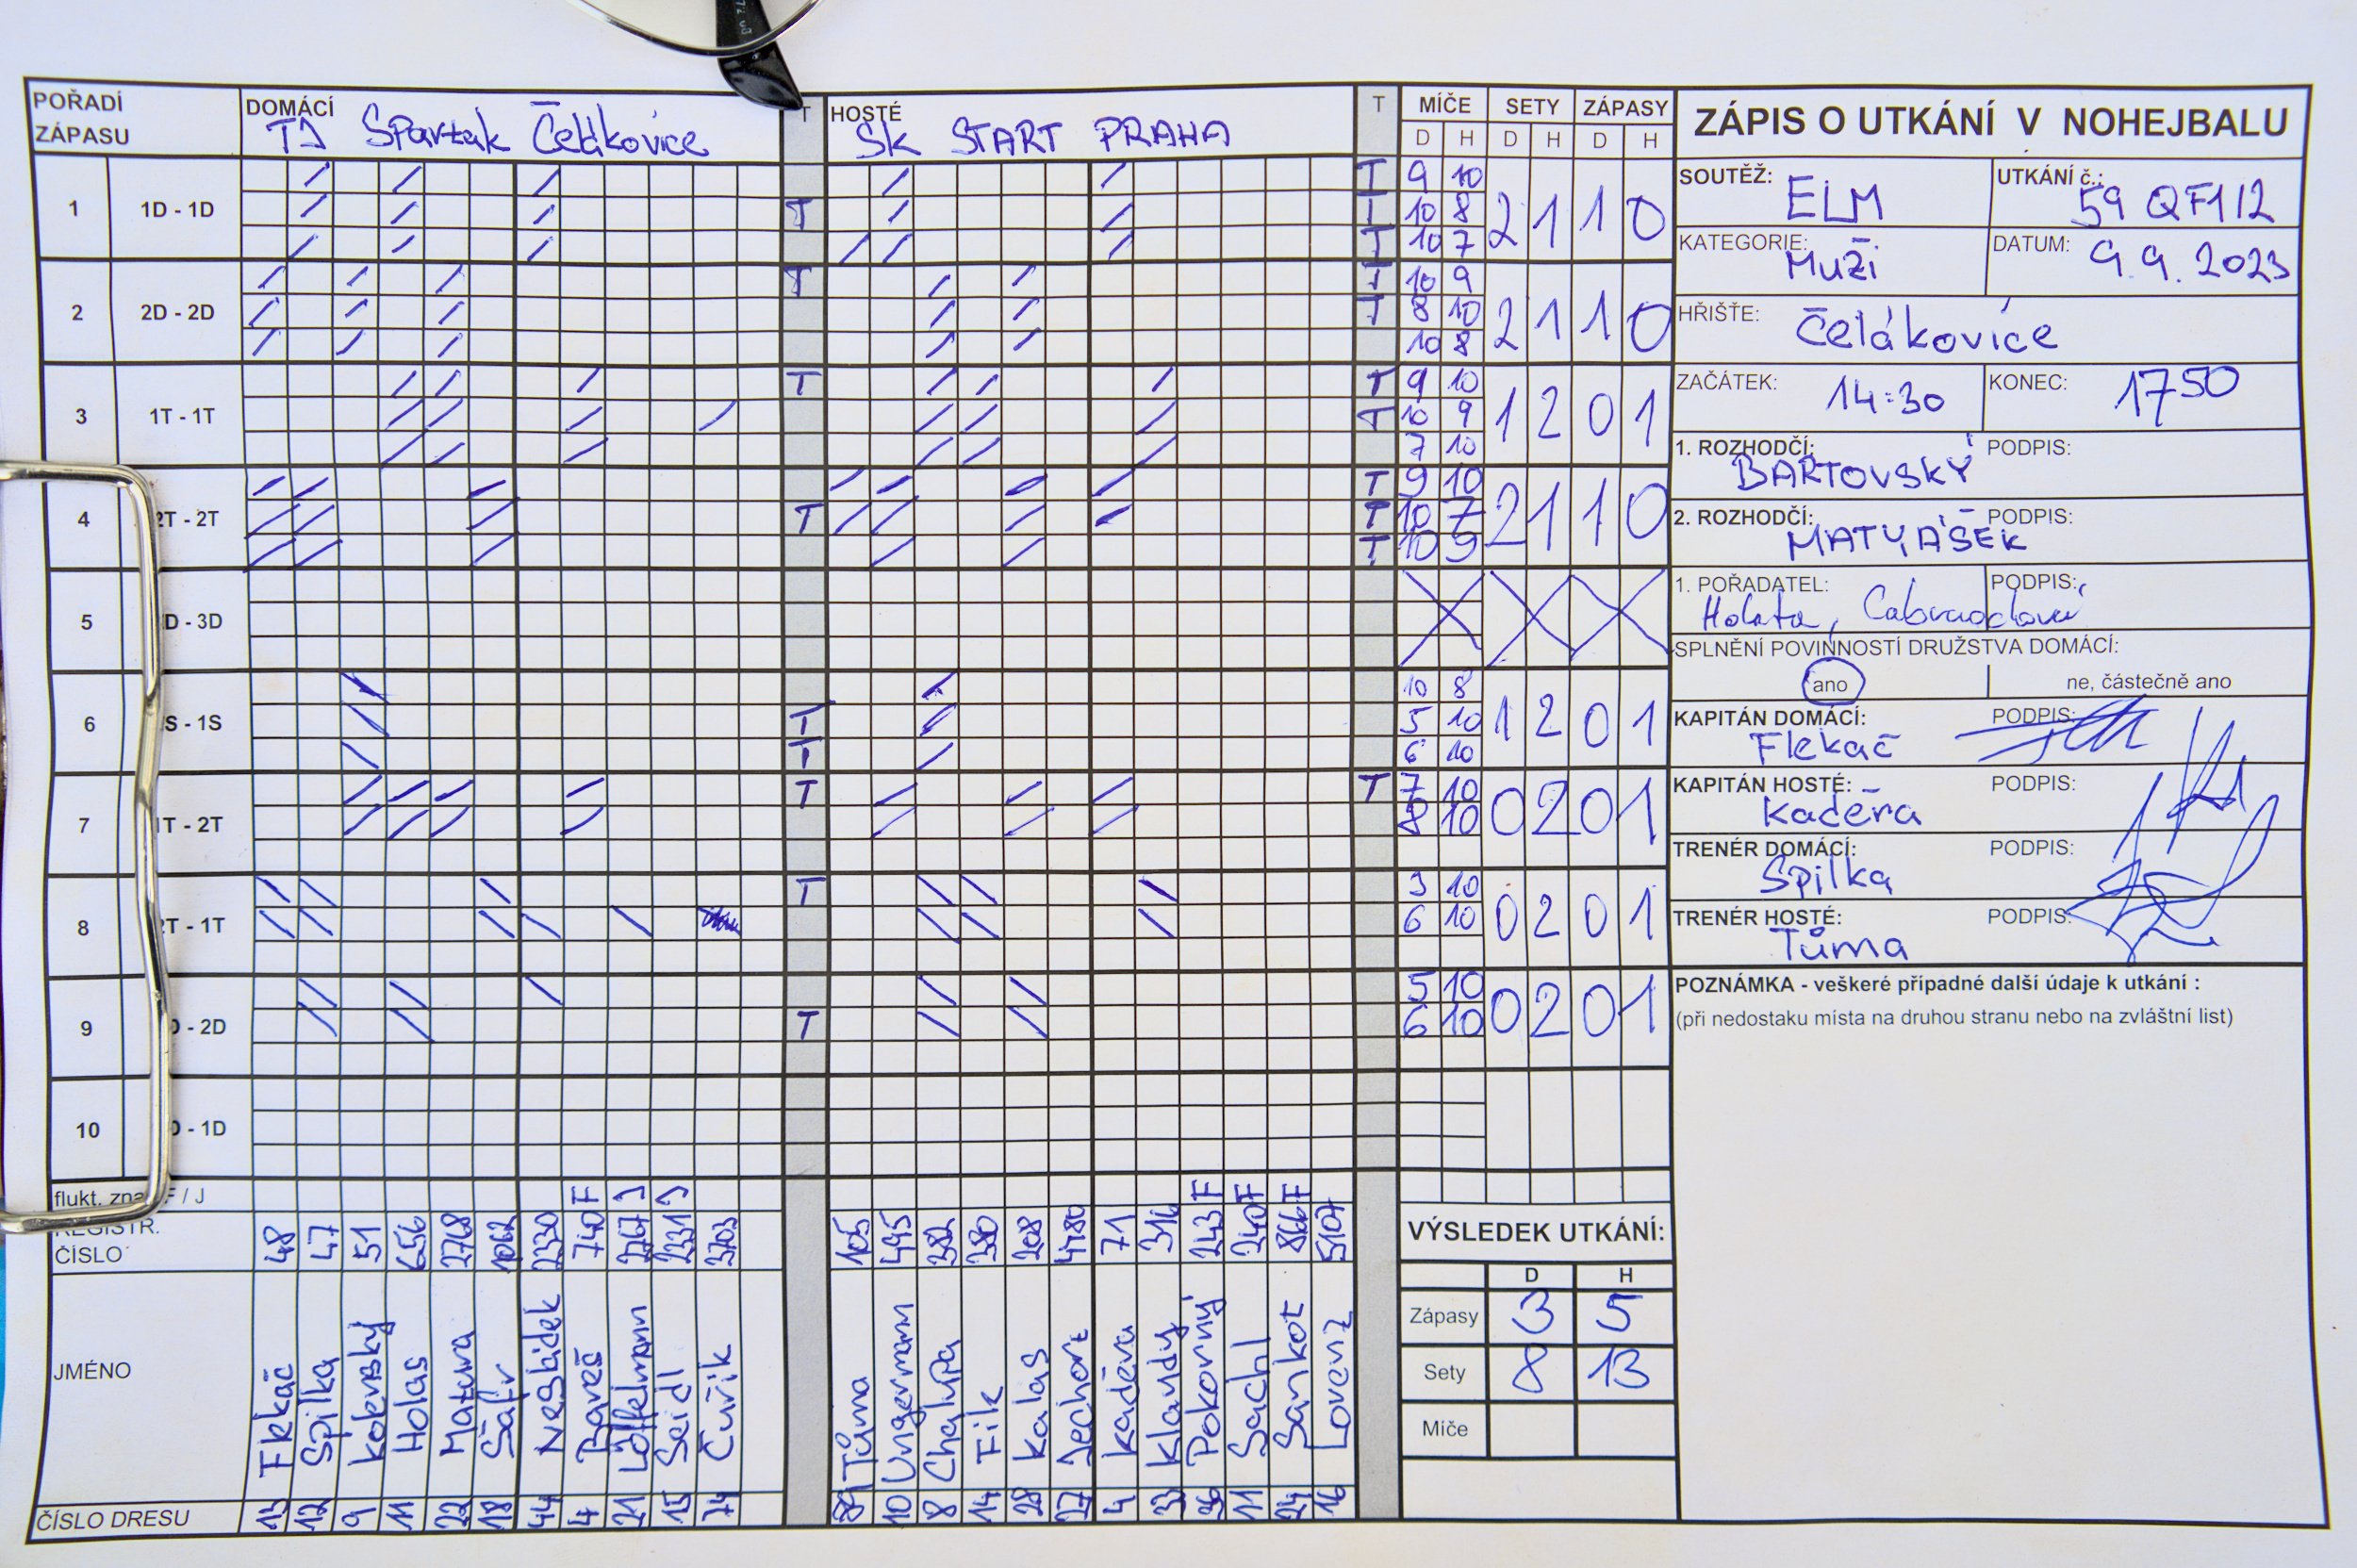 POŘADÍ ZÁPASU
DOMÁCÍ TJ Spartak Čelákovice
T
HOSTÉ SK START PRAHA
T
MÍČE SETY ZÁPASY
D H D H D H
1 1D - 1D T T 9 10 2 1 1 0
T T 10 8
T 10 7
2 2D - 2D T T 10 9 2 1 1 0
T 8 10
10 8
3 1T - 1T T T 9 10 1 2 0 1
T 10 9
7 10
4 2T - 2T T 9 10 2 1 1 0
T T 10 7
T 10 9
5 D - 3D
6 S - 1S 10 8 1 2 0 1
T 5 10
T 6 10
7 1T - 2T T T 7 10 0 2 0 1
8 10
8 2T - 1T T 3 10 0 2 0 1
6 10
9 D - 2D 5 10 0 2 0 1
T 6 10
10 D - 1D
flukt. zna F / J F J J F F F
REGISTR. ČÍSLO 48 47 51 656 2768 1062 2330 740 2767 2331 3703 105 495 382 380 208 4480 71 316 243 240 866 5107
JMÉNO Flekáč Spilka Kokenský Holas Matura Šafr Nesládek Bareš Löffelmann Seidl Čuřík Tůma Ungermann Chalupa Fik Kalas Jechort Kaděra Klaudy Pokorný Sachl Sankot Lorenz
ČÍSLO DRESU 13 12 9 11 22 18 44 4 21 15 74 89 10 8 14 28 27 4 33 36 11 24 16
VÝSLEDEK UTKÁNÍ:
D H
Zápasy 3 5
Sety 8 13
Míče
ZÁPIS O UTKÁNÍ V NOHEJBALU
SOUTĚŽ: ELM UTKÁNÍ č.: 59 QF1/2
KATEGORIE: Muži DATUM: 9.9.2023
HŘIŠTĚ: Čelákovice
ZAČÁTEK: 14:30 KONEC: 17 50
1. ROZHODČÍ: BARTOVSKÝ PODPIS:
2. ROZHODČÍ: MATYÁŠEK PODPIS:
1. POŘADATEL: Holata, PODPIS:
SPLNĚNÍ POVINNOSTÍ DRUŽSTVA DOMÁCÍ:
ano ne, částečně ano
KAPITÁN DOMÁCÍ: Flekáč PODPIS:
KAPITÁN HOSTÉ: Kaděra PODPIS:
TRENÉR DOMÁCÍ: Spilka PODPIS:
TRENÉR HOSTÉ: Tůma PODPIS:
POZNÁMKA - veškeré případné další údaje k utkání :
(při nedostaku místa na druhou stranu nebo na zvláštní list)